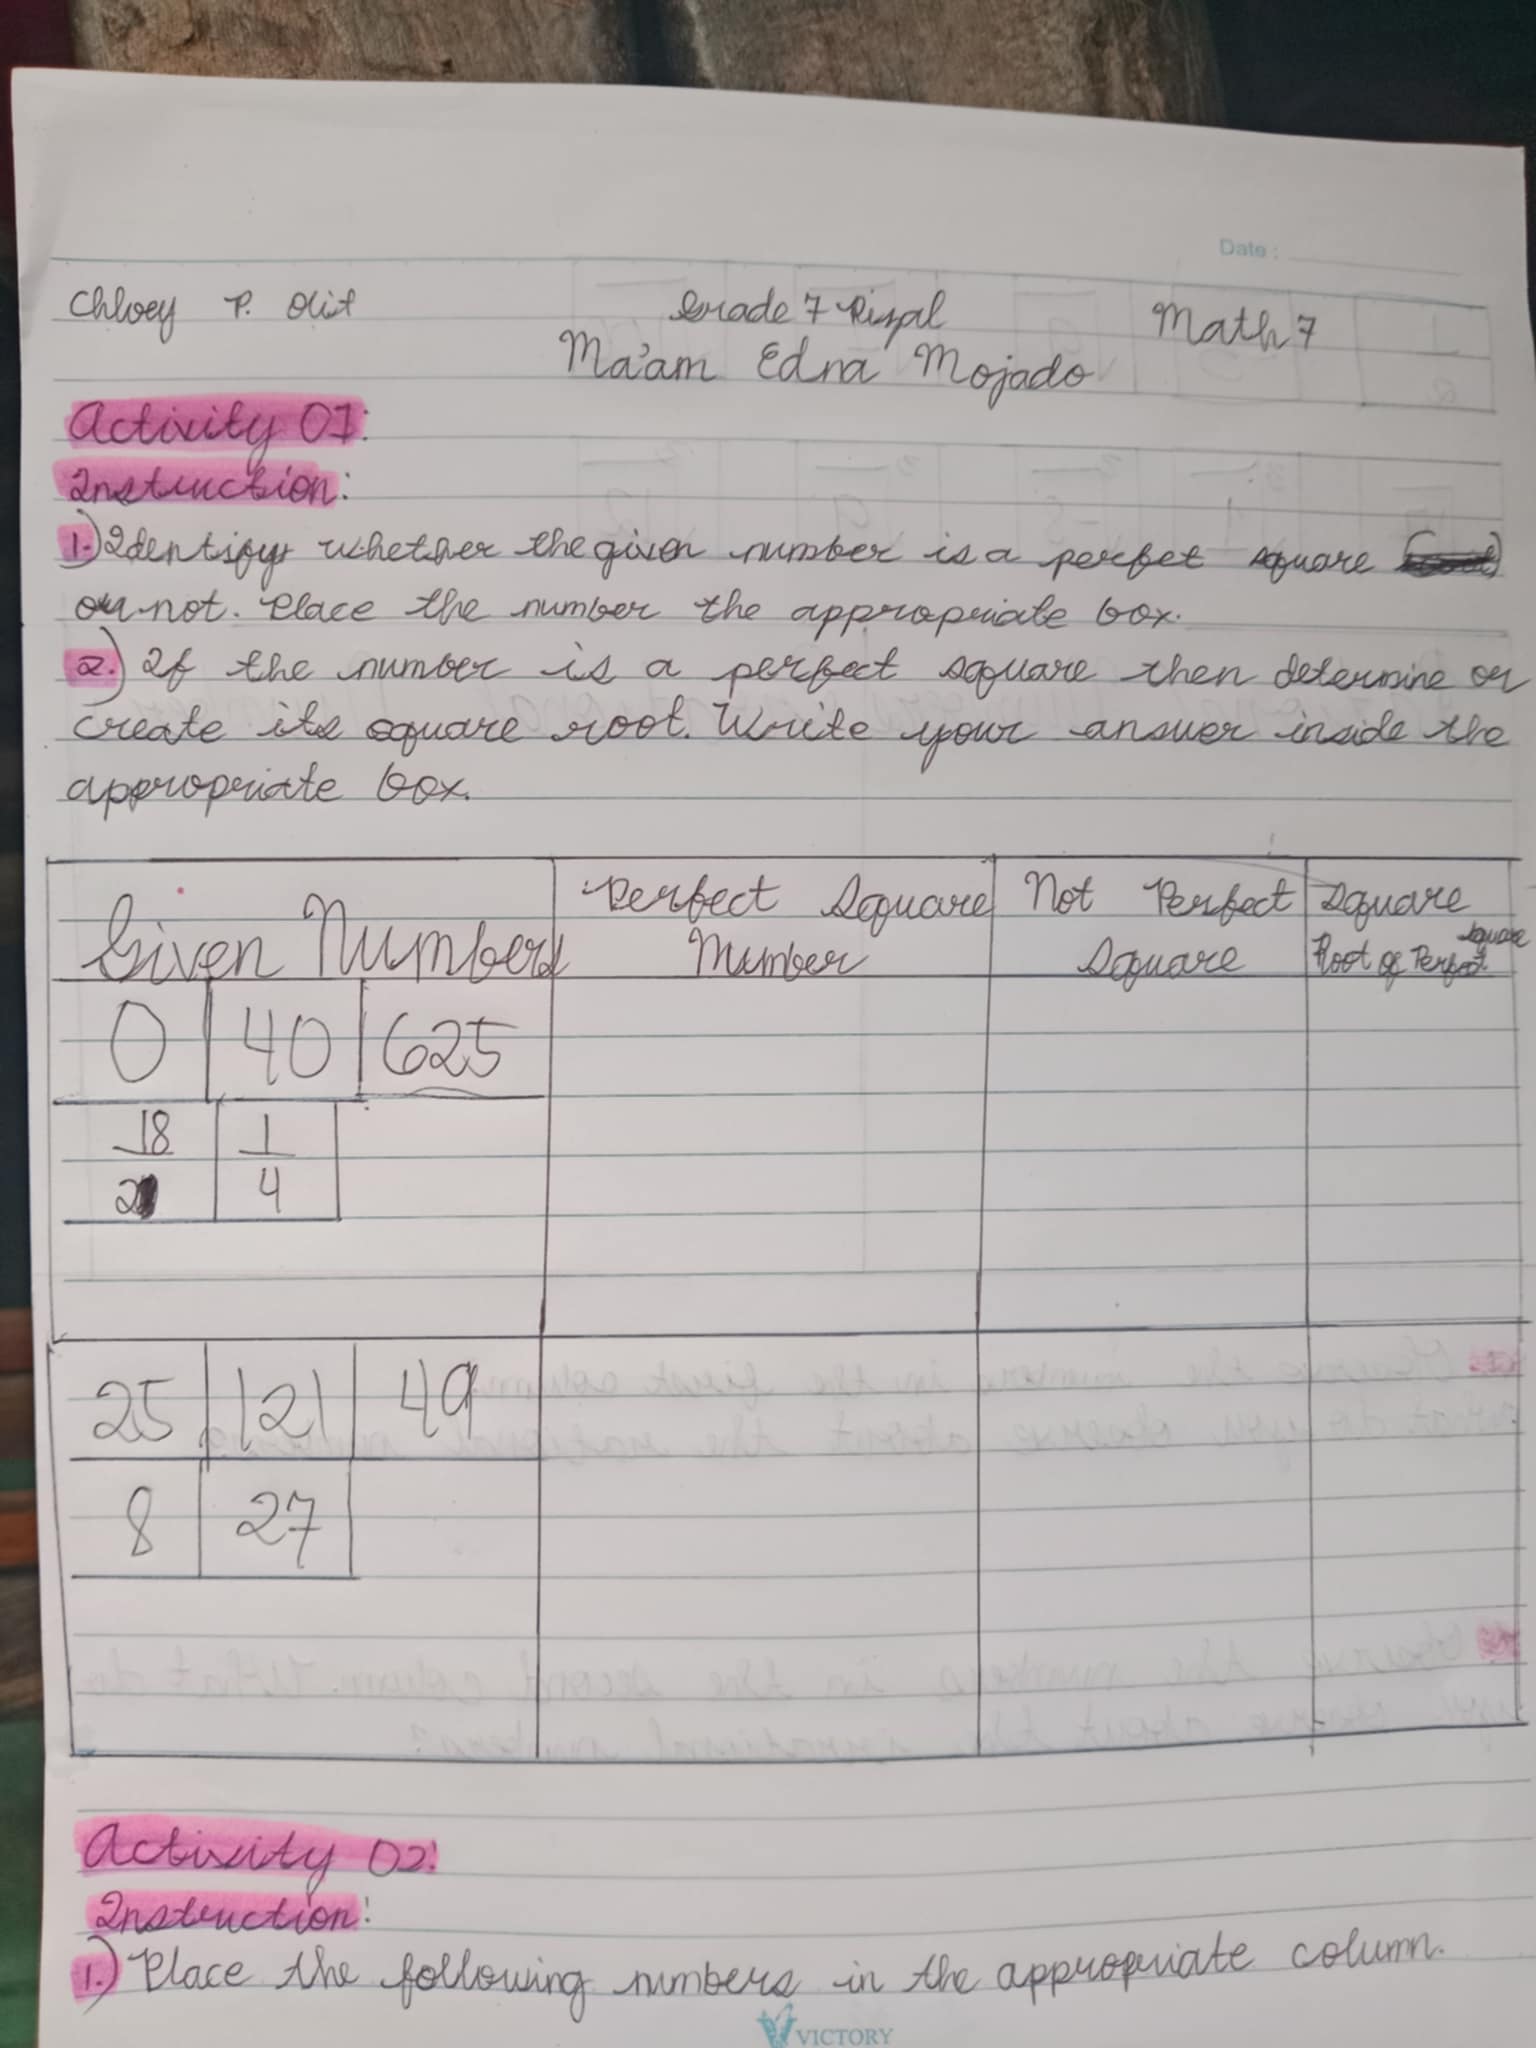 Date:
Chloey P. Olit Grade 7 Rizal Math 7
Ma'am Edna Mojado
Activity 01:
Instruction:
1.) Identify whether the given number is a perfect square
or not. Place the number the appropriate box.
2.) If the number is a perfect square then determine or
create its square root. Write your answer inside the
appropriate box.
Given Numbers
Perfect Square
Number
Not Perfect
Square
Square
Root of Perfect square
0 40 625
18 1
2 4
25 121 49
8 27
Activity 02:
Instruction:
1.) Place the following numbers in the appropriate column.
VICTORY